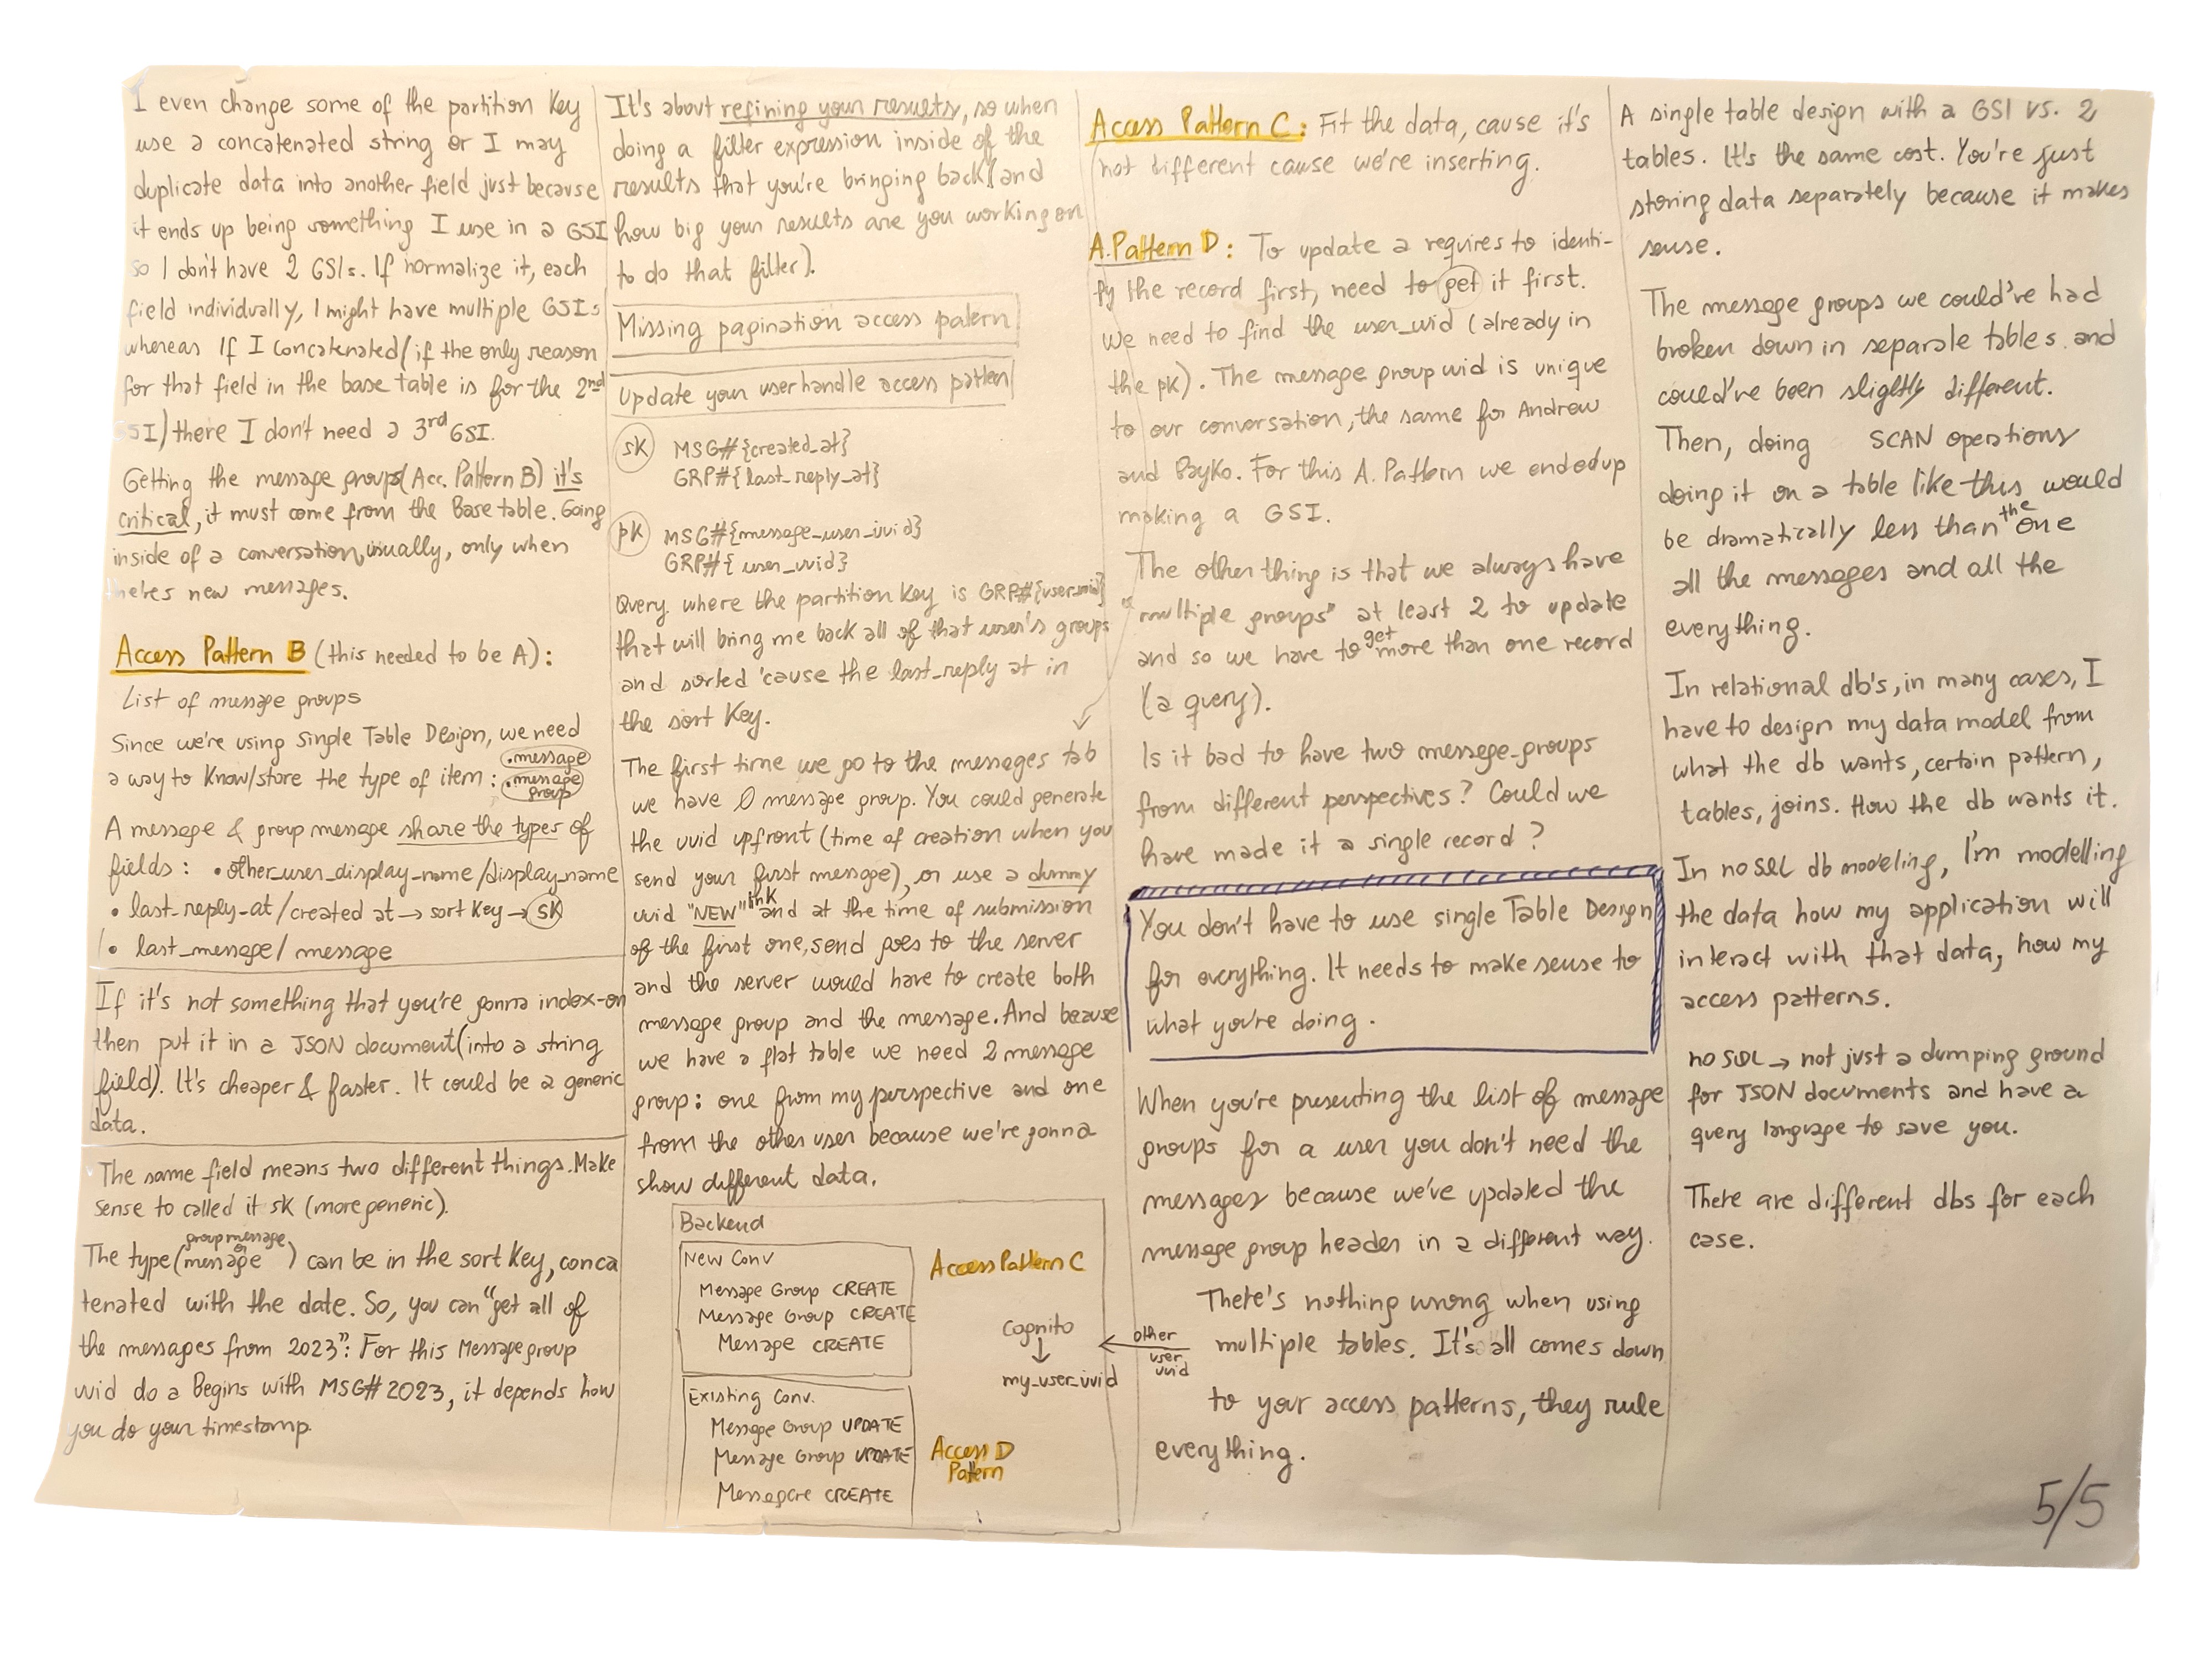 I even change some of the partition Key
use a concatenated string or I may
duplicate data into another field just because
it ends up being something I use in a GSI
so I don't have 2 GSIs. If normalize it, each
field individually, I might have multiple GSIs
whereas If I concatenated (if the only reason
for that field in the base table is for the 2nd
GSI) there I don't need a 3rd GSI.
Getting the message groups (Acc. Pattern B) it's
critical, it must come from the Base table. Going
inside of a conversation, usually, only when
theres new messages.
Access Pattern B (this needed to be A):
List of message groups
Since we're using Single Table Design, we need
a way to Know/store the type of item: • message
• message
group
A message & group message share the types of
fields: • other_user_display_name/display_name
• last_reply_at/created at → sort Key → SK
• last_message/ message
If it's not something that you're gonna index-on
then put it in a JSON document (into a string
field). It's cheaper & faster. It could be a generic
data.
The same field means two different things. Make
sense to called it sk (more generic).
group message
or
The type (message) can be in the sort Key, conca
tenated with the date. So, you can "get all of
the messages from 2023": For this Message group
uuid do a Begins with MSG#2023, it depends how
you do your timestamp.
It's about refining your results, so when
doing a filter expression inside of the
results that you're bringing back (and
how big your results are you working on
to do that filter).
Missing pagination access patern
Update your userhandle access pattern
sk MSG#{created_at}
GRP#{last_reply_at}
pk MSG#{message_user_uuid}
GRP#{user_uuid}
Query where the partition Key is GRP#{user_uuid}
that will bring me back all of that user's groups
and sorted 'cause the last_reply at in
the sort Key.
The first time we go to the messages tab
we have 0 message group. You could generate
the uuid upfront (time of creation when you
send your first message), or use a dummy
uuid "NEW" link and at the time of submission
of the first one, send goes to the server
and the server would have to create both
message group and the message. And because
we have a flat table we need 2 message
group: one from my perspective and one
from the other user because we're gonna
show different data.
Backend
New Conv
Message Group CREATE
Message Group CREATE
Message CREATE
Access Pattern C
Cognito
↓
my_user_uuid
← other
user
uuid
Existing Conv.
Message Group UPDATE
Message Group UPDATE
Messagcre CREATE
Access D
Pattern
Access Pattern C: Fit the data, cause it's
not different cause we're inserting.
A.Pattern D: To update a requires to identi-
fy the record first, need to get it first.
We need to find the user_uuid (already in
the pk). The message group uuid is unique
to our conversation, the same for Andrew
and Bayko. For this A. Pattern we ended up
making a GSI.
The other thing is that we always have
"multiple groups" at least 2 to update
and so we have to get more than one record
(a query).
Is it bad to have two message-groups
from different perspectives? Could we
have made it a single record?
You don't have to use single Table Design
for everything. It needs to make sense to
what you're doing.
When you're presenting the list of message
groups for a user you don't need the
messages because we've updated the
message group header in a different way.
There's nothing wrong when using
multiple tables. It's all comes down
to your access patterns, they rule
everything.
A single table design with a GSI vs. 2
tables. It's the same cost. You're just
storing data separately because it makes
sense.
The message groups we could've had
broken down in separate tables and
could've been slightly different.
Then, doing SCAN operations
doing it on a table like this would
be dramatically less than the one
all the messages and all the
everything.
In relational db's, in many cases, I
have to design my data model from
what the db wants, certain pattern,
tables, joins. How the db wants it.
In no SQL db modeling, I'm modelling
the data how my application will
interact with that data, how my
access patterns.
no SQL → not just a dumping ground
for JSON documents and have a
query language to save you.
There are different dbs for each
case.
5/5